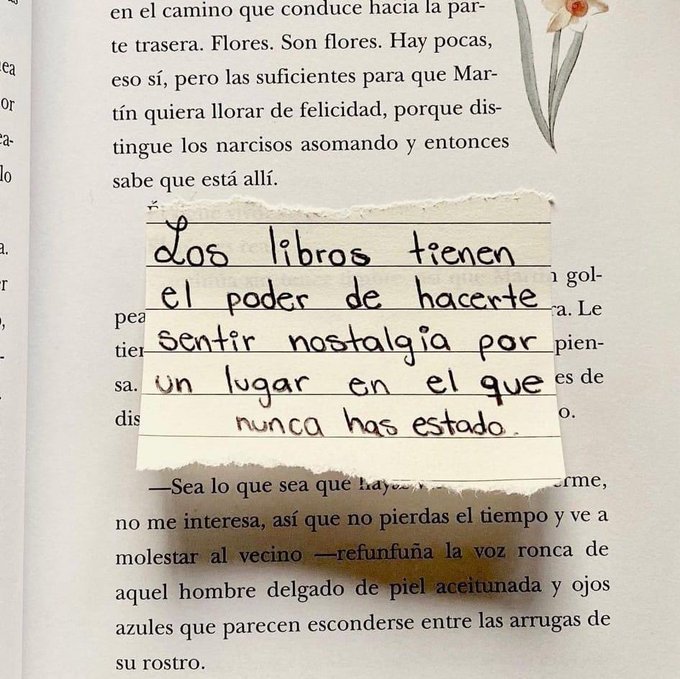 en el camino que conduce hacia la par-
te trasera. Flores. Son flores. Hay pocas,
eso sí, pero las suficientes para que Mar-
tín quiera llorar de felicidad, porque dis-
tingue los narcisos asomando y entonces
sabe que está allí.
Los libros tienen
el poder de hacerte
sentir nostalgia por
un lugar en el que
nunca has estado.
gol-
pea
ra. Le
pien-
sa.
es de
dis
o.
—Sea lo que sea que
rme,
no me interesa, así que no pierdas el tiempo y ve a
molestar al vecino —refunfuña la voz ronca de
aquel hombre delgado de piel aceitunada y ojos
azules que parecen esconderse entre las arrugas de
su rostro.